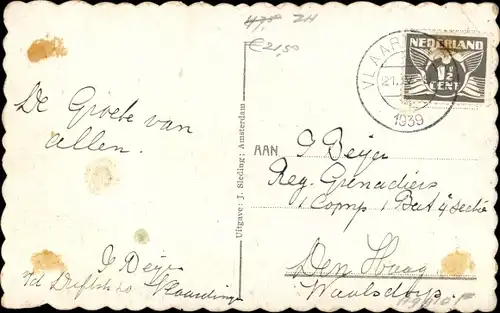 47,50 ZH
€21,50
NEDERLAND
1½
CENT
VLAAR
21.
1939
De Groete van
allen.
AAN
J Beijer
Reg. Grenadiers
1 Comp 1 Bat 4e Sectie
Den Haag
Waalsdorp
J Beijer
Vlaardingen
Uitgave: J. Sleding; Amsterdam